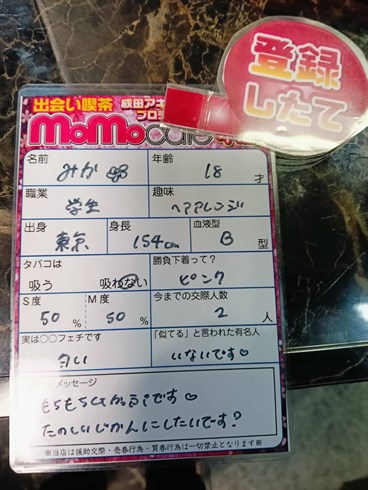 登録
したて
出会い喫茶
MoMo cafe
名前 みか
年齢 18 才
職業 学生
趣味 ヘアアレンジ
出身 東京
身長 154cm
血液型 B 型
タバコは 吸う 吸わない
勝負下着って? ピンク
S度 50 %
M度 50 %
今までの交際人数 2 人
実は○○フェチです 匂い
「似てる」と言われた有名人 いないです♡
メッセージ
もちもちしてからだです♡
たのしいじかんにしたいです?
※当店は援助交際・売春行為・買春行為は一切禁止となります※